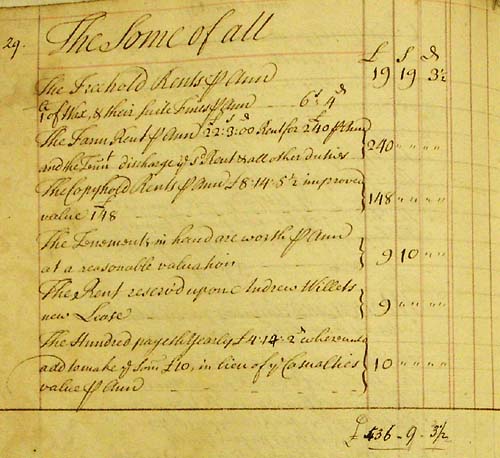 29.
The Some of all
£ S d
The Freehold Rents ⅌ Ann 19 19 3½
of Wax, & their suite Fines ⅌ Ann 6s 4d
The Farm Rent ⅌ Ann 22:3:00 Rent for 240 ⅌ Ann
and the Tennt discharge ye sd Rent & all other duties 240 " " " "
The Copyhold Rents ⅌ Ann £8:14:5½ improved
value 148 148 " " " "
The Tenements in hand are worth ⅌ Ann
at a reasonable valuation 9 10 " "
The Rent reserv'd upon Andrew Willets
new Lease 9 " " " "
The Hundred payeth Yearly £4:14:2d whereunto
add to make ye Som £10, in lieu of ye Casualties
value ⅌ Ann 10 " " " "
£ 436 - 9 - 3½